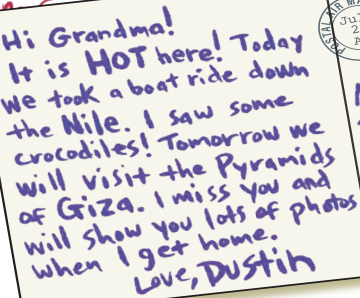 Hi Grandma!
It is HOT here! Today
we took a boat ride down
the Nile. I saw some
crocodiles! Tomorrow we
will visit the Pyramids
of Giza. I miss you and
will show you lots of photos
when I get home.
Love, Dustin
POSTAL AIR MA